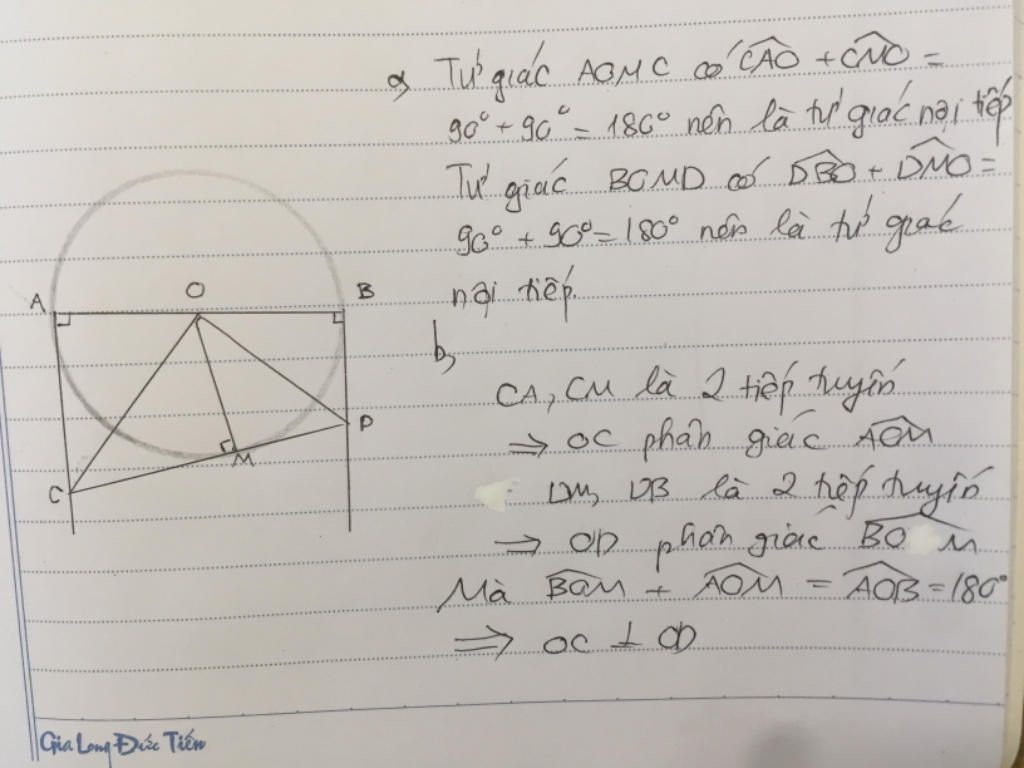 a, Tứ giác AOMC có CAO + CMO =
90° + 90° = 180° nên là tứ giác nội tiếp
Tứ giác BOMD có DBO + DMO =
90° + 90° = 180° nên là tứ giác
nội tiếp.
b,
CA, CM là 2 tiếp tuyến
⇒ OC phân giác AOM
DM, DB là 2 tiếp tuyến
⇒ OD phân giác BOM
Mà BOM + AOM = AOB = 180°
⇒ OC ⊥ OD
A O B
D
M
C
Gia Long Đức Tiến